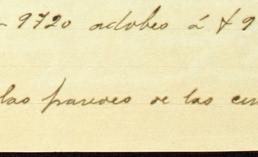 - 9720 adobes á $ 9
las paredes de las